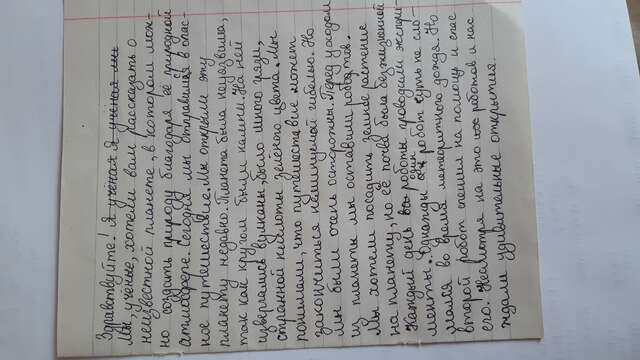 Здравствуйте! Я учёная я учёная мы
Мы, учёные, хотели вам рассказать о
неизвестной планете, в котором мож-
но создать природу благодаря её природной
атмосфере. Сегодня мы отправимся в опас-
ное путешествие. Мы открыли эту
планету недавно. Планета была неизведана,
так как кругом были камни. На ней
извергались вулканы, было много гнези,
странной кислоты зелёного цвета. Мы
понимали, что путешествие может
закончиться неминуемой гибелью. Но
мы были очень осторожны. Перед уходом
из планеты мы оставили роботов.
Мы хотели посадить зелёное растение
на планету, но её почва была безжизненной
Каждый день роботы проводили экспери-
менты. Однажды один робот чуть не сло-
мался во время метеоритного дождя. Но
второй робот спешил на помощь и спас
его. Несмотря на это роботов и нас
ждали удивительные открытия.